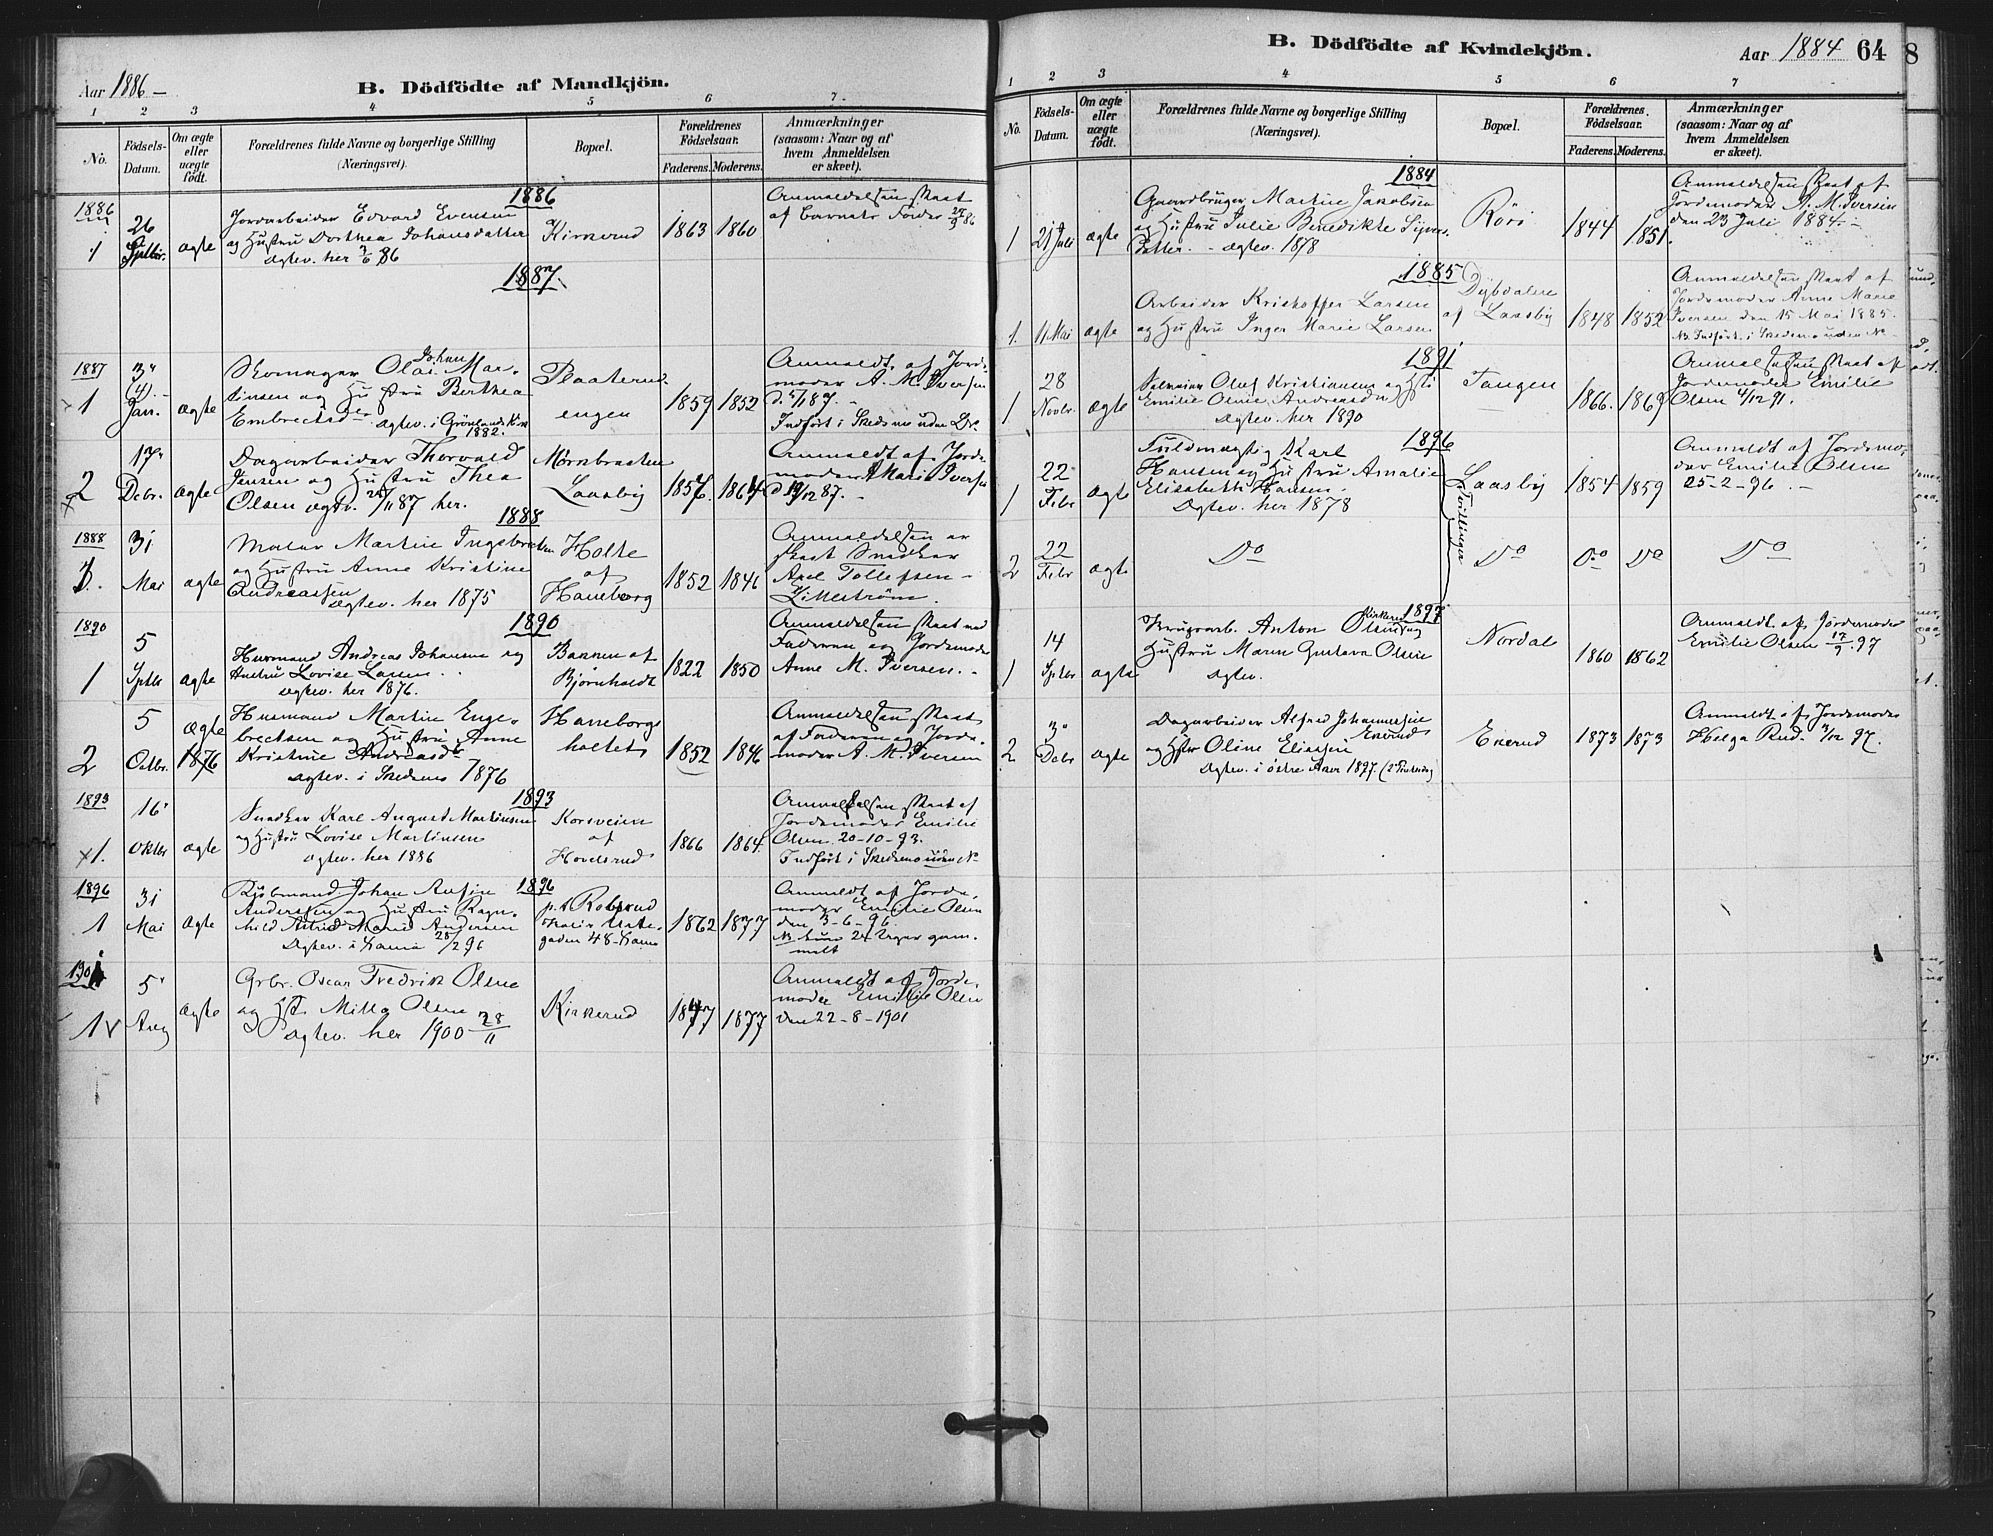 Aar 1886 –
B. Dödfödte af Mandkjön.
1 2 3 4 5 6 7.
No.
Födsels-
Datum.
Om ægte
eller
uægte
födt.
Forældrenes fulde Navne og borgerlige Stilling
(Næringsvei).
Bopæl.
Forældrenes
Födselsaar.
Faderens. Moderens.
Anmærkninger
(saasom: Naar og af
hvem Anmeldelsen
er skeet).
1886
1886
1
26
Septbr.
ægte
Jordarbeider Edvard Evensen
og Hustru Dorthea Johansdatter
ægtev. her
Kirkerud
1863 1860
Anmeldelsen skeet
af Barnets Fader
1887.
1887
1
3
(4)
Jan.
ægte
Skomager Olai Johan Mar-
tinsen og Hustru Berthea
Embretsd
ægtev. i Grönlands K
1882.
Plaaterud-
engen
1859 1852
Anmeldt af Jord-
moder A. M. Iversen
Indført i Skedsmo uden No.
2
17
Debr.
ægte
Dagarbeider Thorvald
Jensen og Hustru Thea
Olsen ægtev. her.
Laasby
Anmeldt af Jord-
moder A Marie Iversen
1888
1888
31
Mai
ægte
Maler Martin Ingebretsen
og Hustru Anne Kristine
Andreassen
ægtev. her 1875
Holte
af
Haneborg
1852 1846
Anmeldelsen er
skeet Snedker
Axel Tollefsen –
Lillestrøm.
1890
1890
1
5
Septbr
ægte
Husmand Andreas Johansen og
Hustru Lovise Larsen
ægtev. her 1876.
Bakken af
Bjørnholdt
1822 1850
Anmeldelsen skeet ved
Faderen og Jordmoder
Anne M. Iversen.
2
5
Octbr.
ægte
1876
Husmand Martin Enge-
bretsen og Hustru Anne
Kristine Andreasd
ægtev. i Skedsmo 1876
Haneborg-
holtet
1852 1846
Anmeldelsen skeet
af Faderen og Jord-
moder A. M. Iversen
1893
1893
x1.
16
Oktbr
ægte
Snedker Karl August Martinsen
og Hustru Lovise Martinsen
ægtev. her 1886
Korsveien
af
Hovelsrud
1866 1864
Anmeldelsen skeet af
Jordmoder Emilie
Olsen 20-10-93.
Indført i Skedsmo uden No
1896
1896
1
31
Mai
ægte
Kjøbmand Johan Anton
Andersen og Hustru Ragn-
hild Astrid Marie Andersen
ægtev. i Hamar 28/2 96
p.t. Robsrud
gaden 48 Hamar
1862 1877
Anmeldt af Jord-
moder Emilie Olsen
den 3-6-96
1901
1
5
Aug
ægte
Grbr. Oscar Fredrik Olsen
og Hst. Milla Olsen
ægtev. her 1900 28/11
Kirkerud
1877 1877
Anmeldt af Jord-
moder Emilie Olsen
den 22-8-1901
B. Dödfödte af Kvindekjön.
Aar 1884 64 8
1 2 3 4 5 6 7
No.
Födsels-
Datum.
Om ægte
eller
uægte
födt.
Forældrenes fulde Navne og borgerlige Stilling
(Næringsvei).
Bopæl.
Forældrenes
Födselsaar.
Faderens. Moderens.
Anmærkninger
(saasom: Naar og af
hvem Anmeldelsen
er skeet).
1884
1
21 Juli
ægte
Gaardbruger Martin Jakobsen
og Hustru Julie Benedikte Sivers-
datter. – ægtev. 1878
Röri
1844 1851.
Anmeldelsen skeet af
Jordmoder A. M. Iversen
den 23 Juli 1884. –
1885
1.
11 Mai
ægte
Arbeider Kristoffer Larsen
og Hustru Inger Marie Larsen
Dybdalen
af Laasby
1848 1852
Anmeldelsen skeet af
Jordmoder Anne Marie
Iversen den 15 Mai 1885.
NB Indført i Skedsmo uden No
1891
1
28
Novbr.
ægte
Olaf Kristiansen og Hst
Emilie Oline Andreasdtr
ægtev. her 1890
Tangen
1866. 1869
Anmeldelsen skeet af
Jordmoder Emilie
Olsen 4/12 91.
1896
1
22
Febr
ægte
Fuldmægtig Karl
Hansen og Hustru Amalie
Elisabeth Hansen
Ægtev. her 1878
Laasby
Tvillinger
1854 1859
Anmeldt af Jordmo-
der Emilie Olsen
25-2-96. –
2
22
Febr
ægte
Do
Do
Do Do
Do
1897
1
14
Septbr
ægte
Brugsarb. Anton Olsen Kirkerud og
Hustru Maren Gustava Olsen
ægtev.
Nordal
1860 1862
Anmeldt af Jordemoder
Emilie Olsen 17/9 97
2
3
Debr
ægte
Dagarbeider Alfred Johannesen
Ekerud
og Hstr Oline Eliassen
Ægtev. i östre Aker 1897.
Ekerud
1873 1873
Anmeldt af Jordemoder
Helga Rud. 3/12 97.